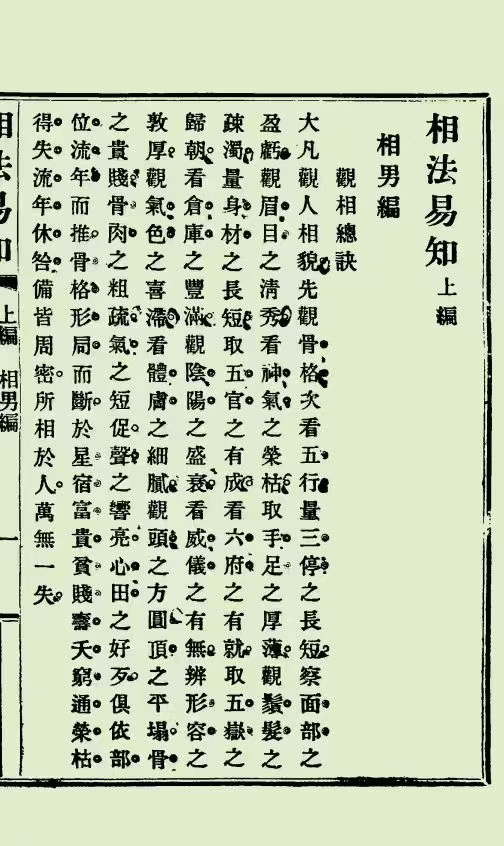 相法易知 上編
相男編
觀相總訣
大凡觀人相貌先觀骨格次看五行量三停之長短察面部之
盈虧觀眉目之清秀看神氣之榮枯取手足之厚薄觀鬚髮之
疎濁量身材之長短取五官之有成看六府之有就取五嶽之
歸朝看倉庫之豐滿觀陰陽之盛衰看威儀之有無辨形容之
敦厚觀氣色之喜滯看體膚之細膩觀頭之方圓頂之平塌骨
之貴賤骨肉之粗疏氣之短促聲之響亮心田之好歹俱依部
位流年而推骨格形局而斷於星宿富貴貧賤壽夭窮通榮枯
得失流年休咎備皆周密。所相於人。萬無一失。
相法易知 上編 相男編 一